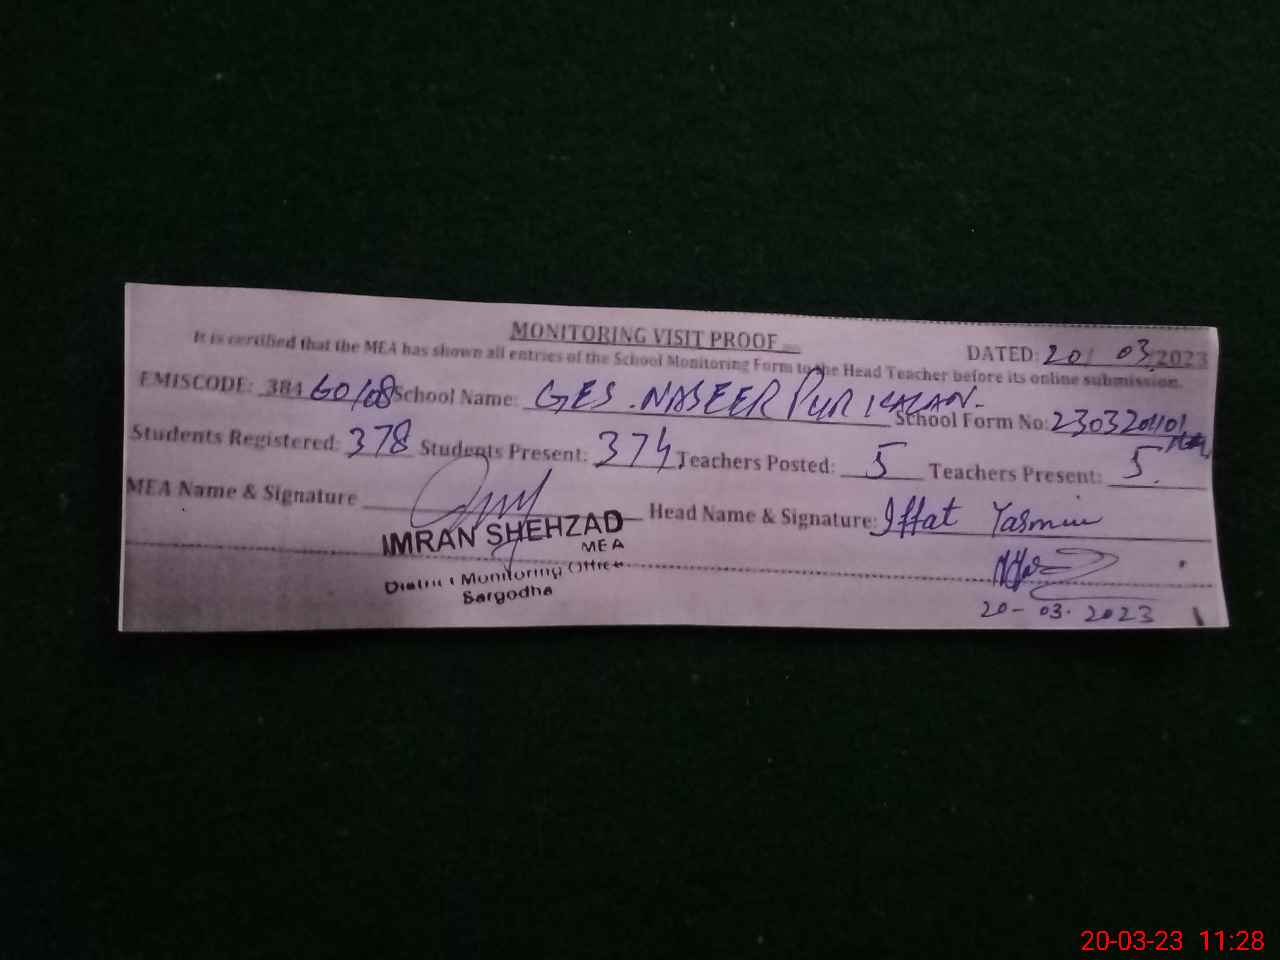 MONITORING VISIT PROOF
DATED: 20/ 03/2023
It is certified that the MEA has shown all entries of the School Monitoring Form to the Head Teacher before its online submission.
EMISCODE: 384 60108 School Name: GES. NASEER PUR KALAN.
School Form No: 2303201101
Students Registered: 378 Students Present: 374 Teachers Posted: 5 Teachers Present: 5.
MEA Name & Signature
Head Name & Signature: Iffat Yasmin
IMRAN SHEHZAD
MEA
District Monitoring Officer
Sargodha
20-03.2023
20-03-23 11:28